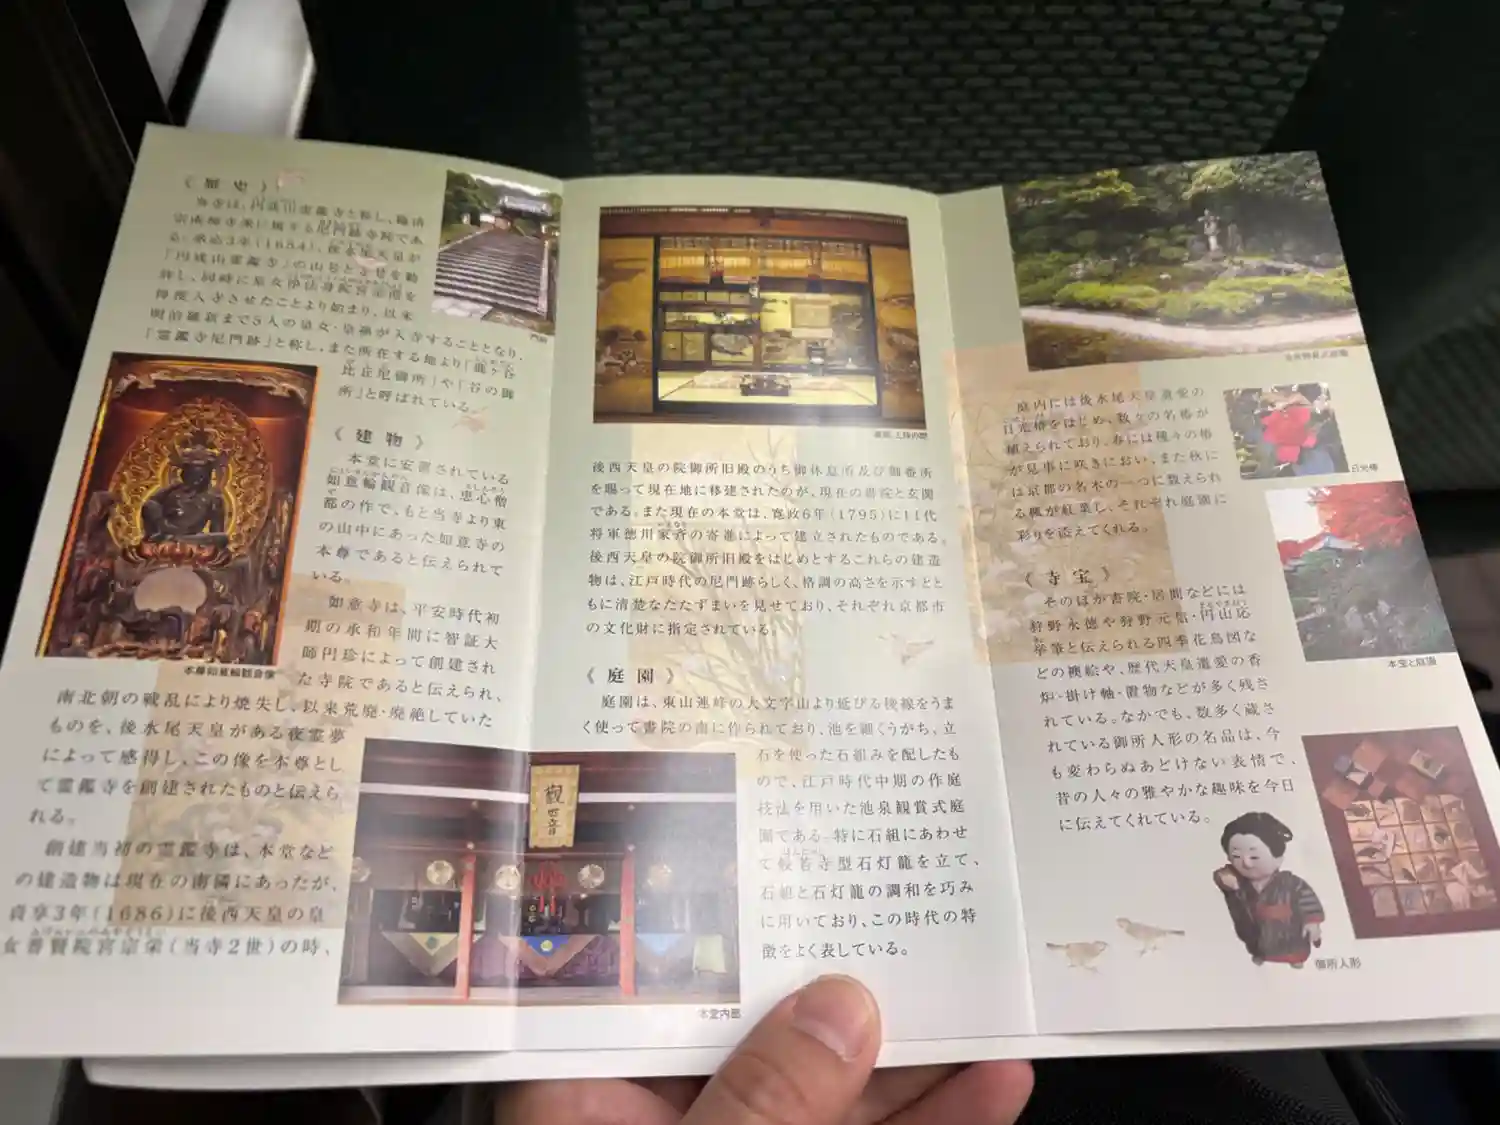 《歴史》
当寺は、円成山霊鑑寺と称し、臨済
宗南禅寺派に属する尼門跡寺院であ
る。承応3年(1654)、後水尾天皇が
「円成山霊鑑寺」の山号と寺号を勅
許し、同時に皇女浄法身院宮宗澄を
得度入寺させたことより始まり、以来
明治維新まで5人の皇女・皇孫が入寺することとなり、
「霊鑑寺尼門跡」と称し、また所在する地より「鹿ヶ谷
比丘尼御所」や「谷の御
所」と呼ばれている。
門跡
《建物》
本堂に安置されている
如意輪観音像は、恵心僧
都の作で、もと当寺より東
の山中にあった如意寺の
本尊であると伝えられて
いる。
如意寺は、平安時代初
期の承和年間に智証大
師円珍によって創建され
た寺院であると伝えられ、
本尊如意輪観音像
南北朝の戦乱により焼失し、以来荒廃・廃絶していた
ものを、後水尾天皇がある夜霊夢
によって感得し、この像を本尊とし
て霊鑑寺を創建されたものと伝えら
れる。
創建当初の霊鑑寺は、本堂など
の建造物は現在の南隣にあったが、
貞享3年(1686)に後西天皇の皇
女普賢院宮宗栄(当寺2世)の時、
観世音
本堂内部
書院、上段の間
後西天皇の院御所旧殿のうち御休息所及び御番所
を賜って現在地に移建されたのが、現在の書院と玄関
である。また現在の本堂は、寛政6年(1795)に11代
将軍徳川家斉の寄進によって建立されたものである。
後西天皇の院御所旧殿をはじめとするこれらの建造
物は、江戸時代の尼門跡らしく、格調の高さを示すとと
もに清楚なたたずまいを見せており、それぞれ京都市
の文化財に指定されている。
《庭園》
庭園は、東山連峰の大文字山より延びる稜線をうま
く使って書院の南に作られており、池を細くうがち、立
石を使った石組みを配したも
ので、江戸時代中期の作庭
技法を用いた池泉観賞式庭
園である。特に石組にあわせ
はんにゃじ
て般若寺型石灯籠を立て、
石組と石灯籠の調和を巧み
に用いており、この時代の特
徴をよく表している。
庭内には後水尾天皇遺愛の
日光椿をはじめ、数々の名椿が
植えられており、春には種々の椿
が見事に咲きにおい、また秋に
は京都の名木の一つに数えられ
る楓が紅葉し、それぞれ庭園に
彩りを添えてくれる。
日光椿
本堂と庭園
《寺宝》
そのほか書院・居間などには
狩野永徳や狩野元信・円山応
挙筆と伝えられる四季花鳥図な
どの襖絵や、歴代天皇遺愛の香
炉・掛け軸・置物などが多く残さ
れている。なかでも、数多く蔵さ
れている御所人形の名品は、今
も変わらぬあどけない表情で、
昔の人々の雅やかな趣味を今日
に伝えてくれている。
御所人形